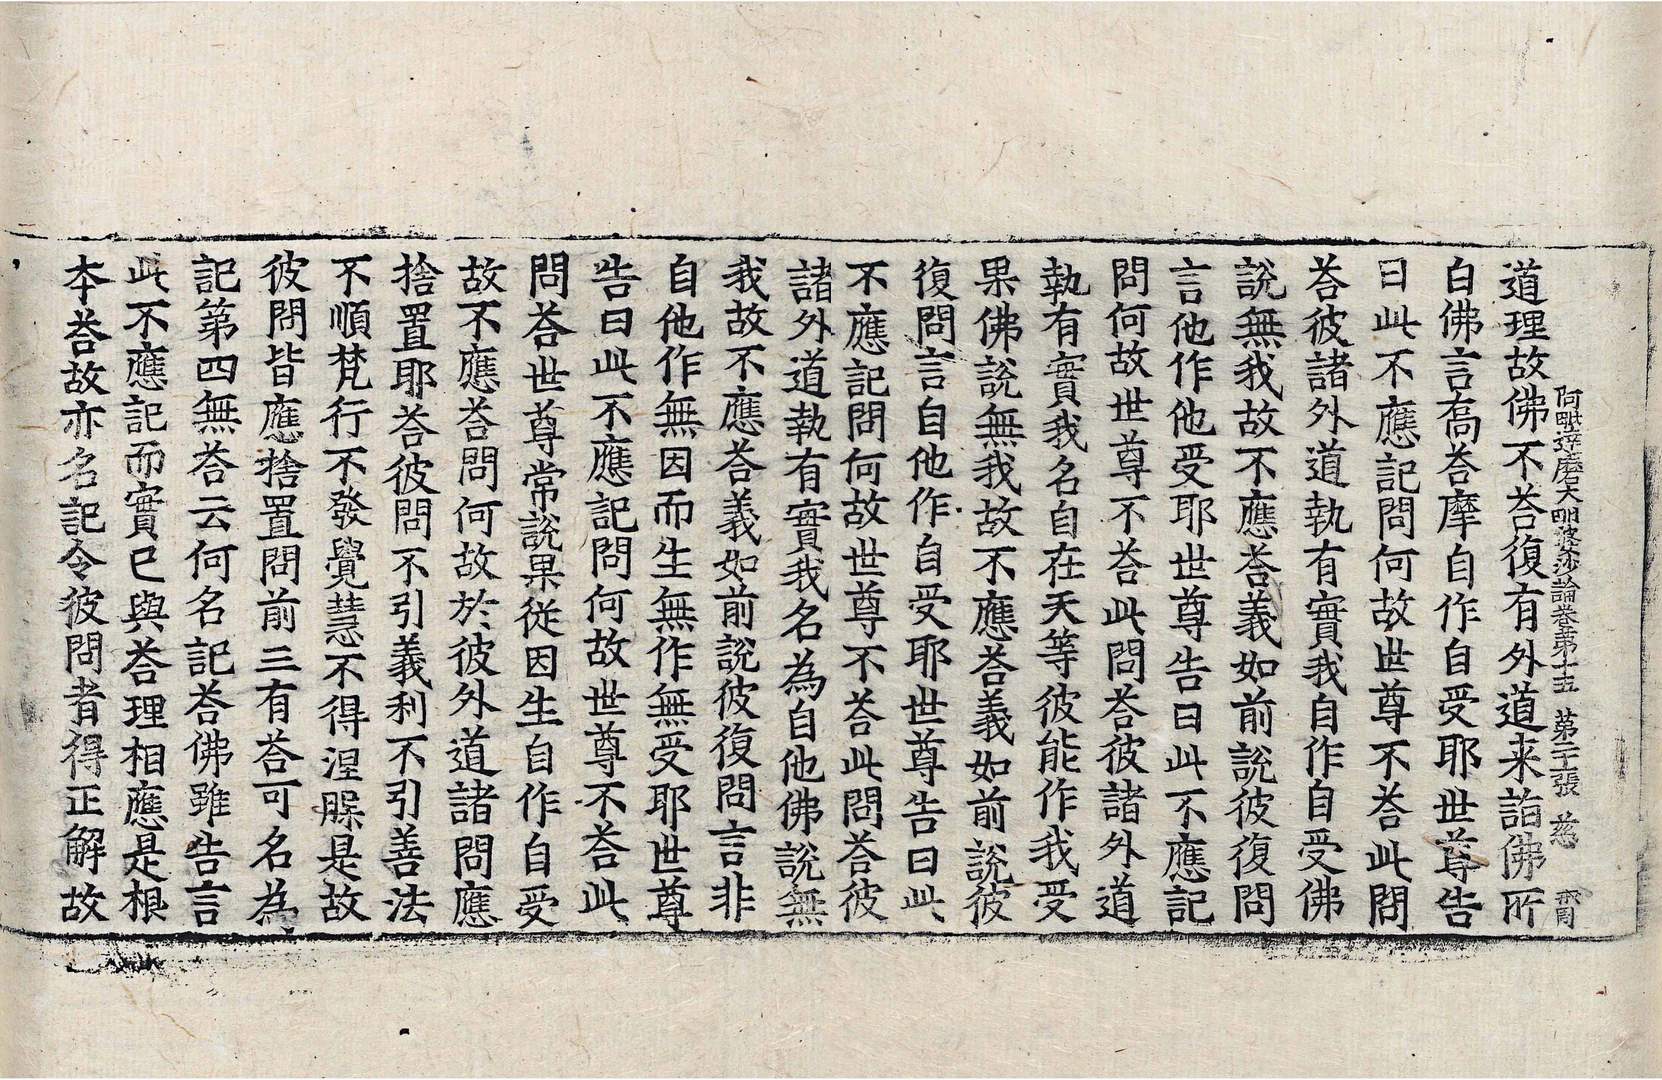 阿毗達磨大毗婆沙論卷第十五　第二十張　慈
道理故佛不荅復有外道来詣佛所
白佛言髙荅摩自作自受耶世尊告
曰此不應記問何故世尊不荅此問
荅彼諸外道執有實我自作自受佛
說無我故不應荅義如前說彼復問
言他作他受耶世尊告曰此不應記
問何故世尊不荅此問荅彼諸外道
執有實我名自在天等彼能作我受
果佛說無我故不應荅義如前說彼
復問言自他作自受耶世尊告曰此
不應記問何故世尊不荅此問荅彼
諸外道執有實我名為自他佛說無
我故不應荅義如前說彼復問言非
自他作無因而生無作無受耶世尊
告曰此不應記問何故世尊不荅此
問荅世尊常說果從因生自作自受
故不應荅問何故於彼外道諸問應
捨置耶荅彼問不引義利不引善法
不順梵行不發覺慧不得涅槃是故
彼問皆應捨置問前三有荅可名為
記第四無荅云何名記荅佛雖告言
此不應記而實已與荅理相應是根
本荅故亦名記令彼問者得正解故